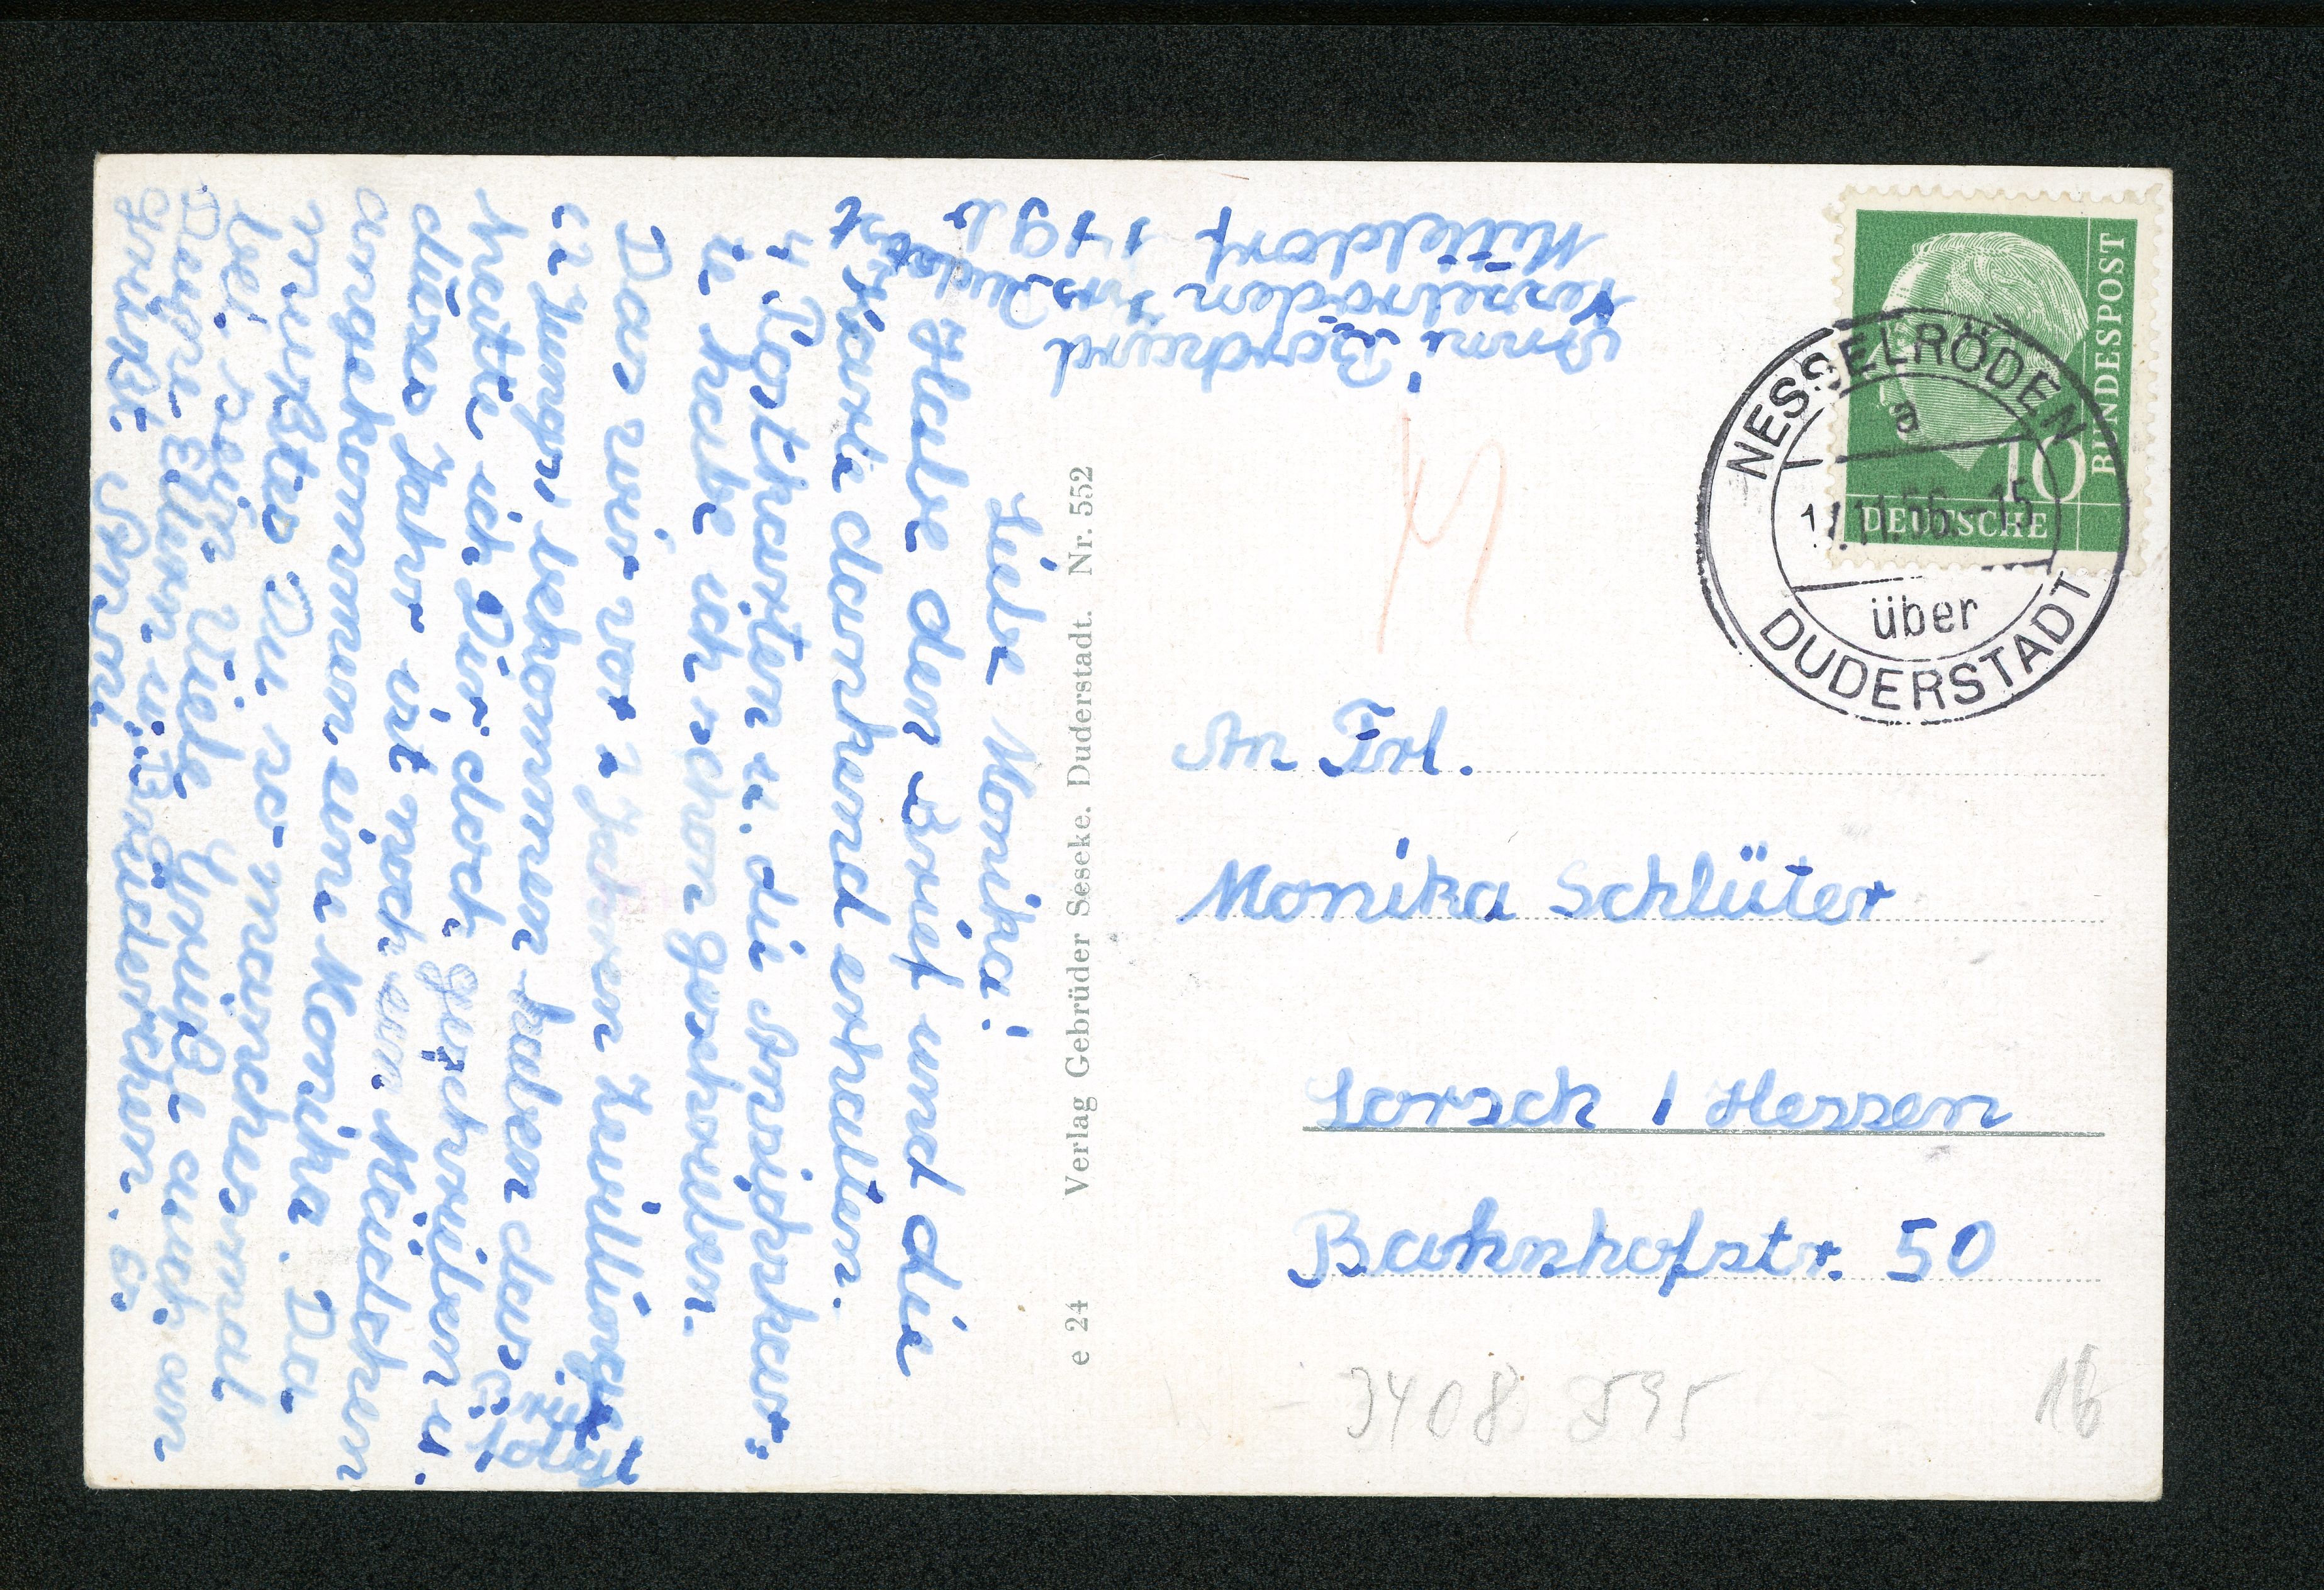 Liebe Monika!
Habe den Brief und die
Karte dankend erhalten.
4 Postkarten u. die Ansichskar-
te habe ich schon geschrieben.
Das wir vor 2 Jahren Zwillinge
(2 Jungs) bekommen haben das
hatte ich Dir doch geschrieben u.
dises Jahr ist noch ein Mädchen
angekommen eine Monika. Da
müßtes Du so manchesmal
bei sein. Viele Grüße auch an
Deine Eltern u. Brüderchen. Es
grüßt Anni
Anni Borchard
Nesselröden
Mitteldorf 179 b
e 24 Verlag Gebrüder Seseke, Duderstadt. Nr. 552
DEUTSCHE
BUNDESPOST
10
NESSELRÖDEN
a
11.56.-15
über
DUDERSTADT
An Frl.
Monika Schlüter
Lorsch / Hessen
Bahnhofstr. 50
3408 595
16